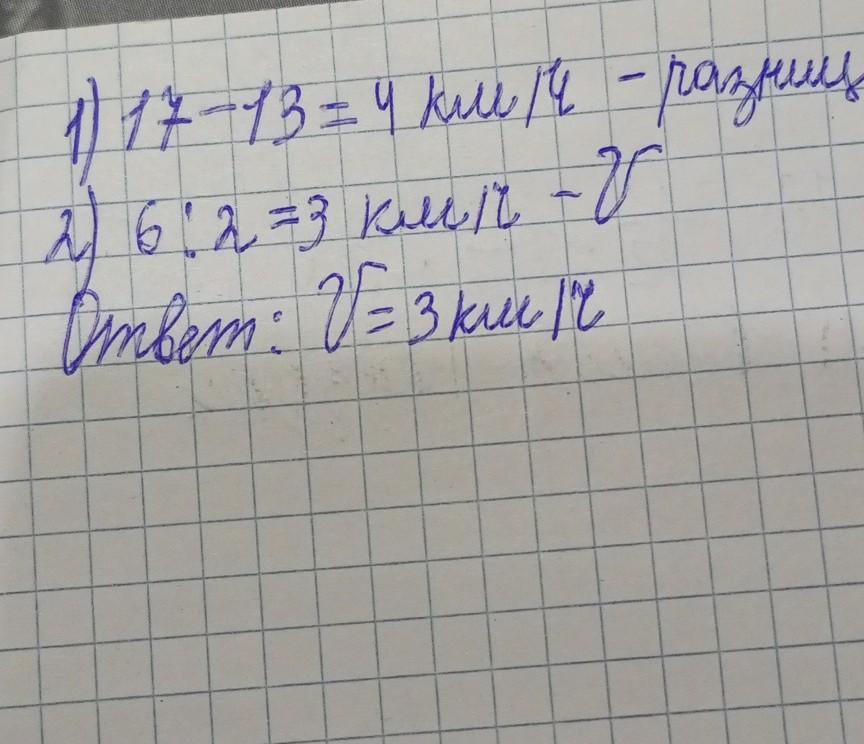 1) 17-13=4 км/ч - разниц
2) 6:2=3 км/ч - V
Ответ: V=3км/ч